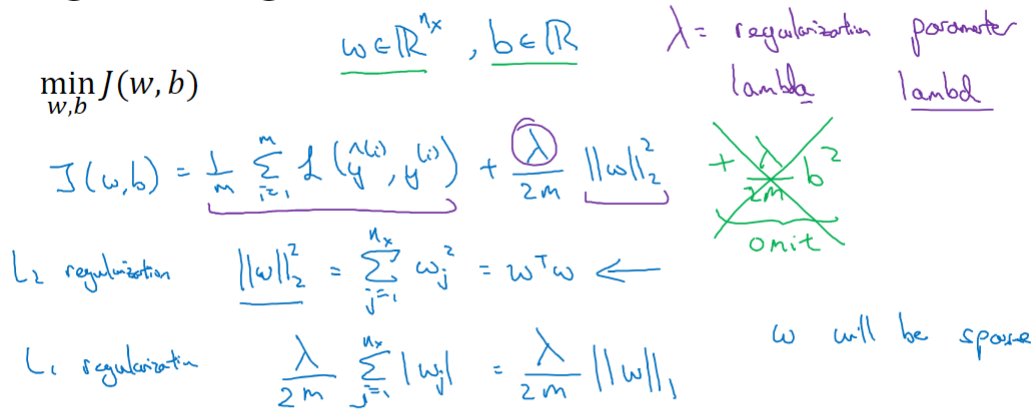 w ∈ ℝ^{n_x}, b ∈ ℝ
λ = regularization parameter
lambda lambd
min_{w,b} J(w, b)
J(w,b) = 1/m ∑_{i=1}^{m} ℒ(ŷ^{(i)}, y^{(i)}) + λ/2m ||w||_2^2 + λ/2m b^2
omit
L_2 regularization ||w||_2^2 = ∑_{j=1}^{n_x} w_j^2 = w^T w ←
L_1 regularization λ/2m ∑_{j=1}^{n_x} |w_j| = λ/2m ||w||_1
w will be sparse